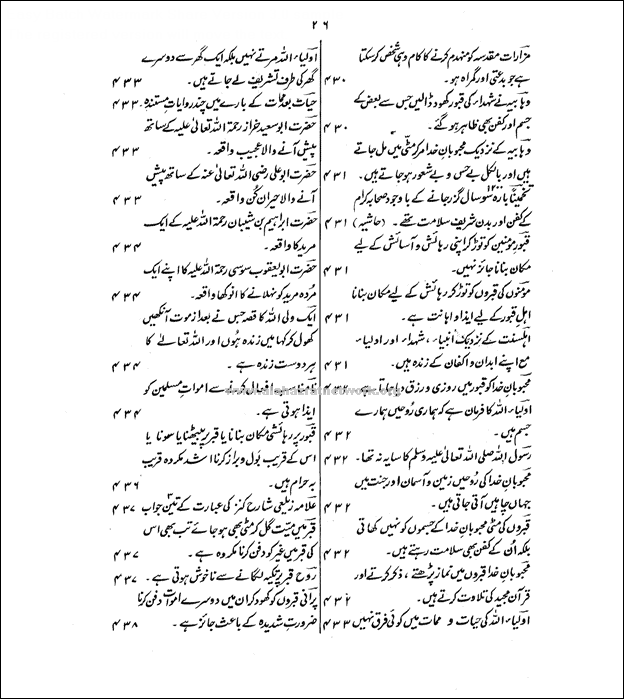 ۲۶
مزارات مقدسہ کو منہدم کرنے کا کام وہی شخص کرسکتا
ہے جو بدعتی اور گمراہ ہو۔ ۴۳۰
وہابیہ نے شہداء کی قبور کھود ڈالیں جس سے بعض کے
جسم اور کفن بھی ظاہر ہوگئے۔ ۴۳۰
وہابیہ کے نزدیک محبوبانِ خدا مرکر مٹی میں مل جاتے
ہیں اور بالکل بے حس و بے شعور ہوجاتے ہیں۔ ۴۳۱
تخمیناً بارہ ۱۲۰۰ سو سال گزر جانے کے باوجود صحابہ کرام
کے کفن اور بدن شریف سلامت تھے۔ (حاشیہ) ۴۳۱
قبورِ مومنین کو توڑ کر اپنی رہائش و آسائش کے لیے
مکان بنانا جائز نہیں۔ ۴۳۱
مومنوں کی قبروں کو توڑ کر رہائش کے لیے مکان بنانا
اہلِ قبور کے لیے ایذا و اہانت ہے۔ ۴۳۱
اہلسنت کے نزدیک انبیاء، شہداء اور اولیاء
مع اپنے ابدان و اکفان کے زندہ ہیں۔ ۴۳۱
محبوبانِ خدا کو قبور میں روزی و رزق دیا جاتا ہے ۴۳۲
اولیاء اللہ کا فرمان ہے کہ ہماری روحیں ہمارے
جسم ہیں۔ ۴۳۲
رسول اللہ صلی اللہ تعالیٰ علیہ وسلم کا سایہ نہ تھا۔ ۴۳۲
محبوبانِ خدا کی روحیں زمین و آسمان اور جنت میں
جہاں چاہیں آتی جاتی ہیں۔ ۴۳۲
قبروں کی مٹی محبوبانِ خدا کے جسموں کو نہیں کھاتی
بلکہ اُن کے کفن بھی سلامت رہتے ہیں۔ ۴۳۲
محبوبانِ خدا قبروں میں نماز پڑھتے، ذکر کرتے اور
قرآن مجید کی تلاوت کرتے ہیں۔ ۴۳۲
اولیاء اللہ کی حیات و ممات میں کوئی فرق نہیں ۴۳۳
اولیاء اللہ مرتے نہیں بلکہ ایک گھر سے دوسرے
گھر کی طرف تشریف لے جاتے ہیں۔ ۴۳۳
حیات بعد ممات کے بارے میں چند روایاتِ مستندہ۔ ۴۳۳
حضرت ابوسعید خراز رحمۃ اللہ تعالیٰ علیہ کے ساتھ
پیش آنے والا عجیب واقعہ۔ ۴۳۳
حضرت ابوعلی رضی اللہ تعالیٰ عنہ کے ساتھ پیش
آنے والا حیران کُن واقعہ۔ ۴۳۳
حضرت ابراہیم بن شیبان رحمۃ اللہ علیہ کے ایک
مرید کا واقعہ۔ ۴۳۴
حضرت ابویعقوب سوسی رحمۃ اللہ علیہ کا اپنے ایک
مُردہ مرید کو نہلانے کا انوکھا واقعہ۔ ۴۳۴
ایک ولی اللہ کا قصہ جس نے بعد از موت آنکھیں
کھول کر کہا میں زندہ ہوں اور اللہ تعالیٰ کا
ہر دوست زندہ ہے۔ ۴۳۴
افعال کرنے سے امواتِ مسلمین کو
ایذا ہوتی ہے۔ ۴۳۴
قبور پر رہائشی مکان بنانا یا قبر پر بیٹھنا یا سونا یا
اس کے قریب بَول و براز کرنا اشد مکروہ قریب
بہ حرام ہیں۔ ۴۳۶
علامہ زیلعی شارح کنز کی عبارت کے تین ۳ جواب ۴۳۷
قبر میں میّت گل کر مٹی بھی ہوجائے تب بھی اس
کی قبر میں غیر کو دفن کرنا مکروہ ہے۔ ۴۳۷
روح قبر پر تکیہ لگانے سے ناخوش ہوتی ہے۔ ۴۳۷
پرانی قبروں کو کھود کر ان میں دوسرے اموات دفن کرنا
ضرورتِ شدیدہ کے باعث جائز ہے۔ ۴۳۸